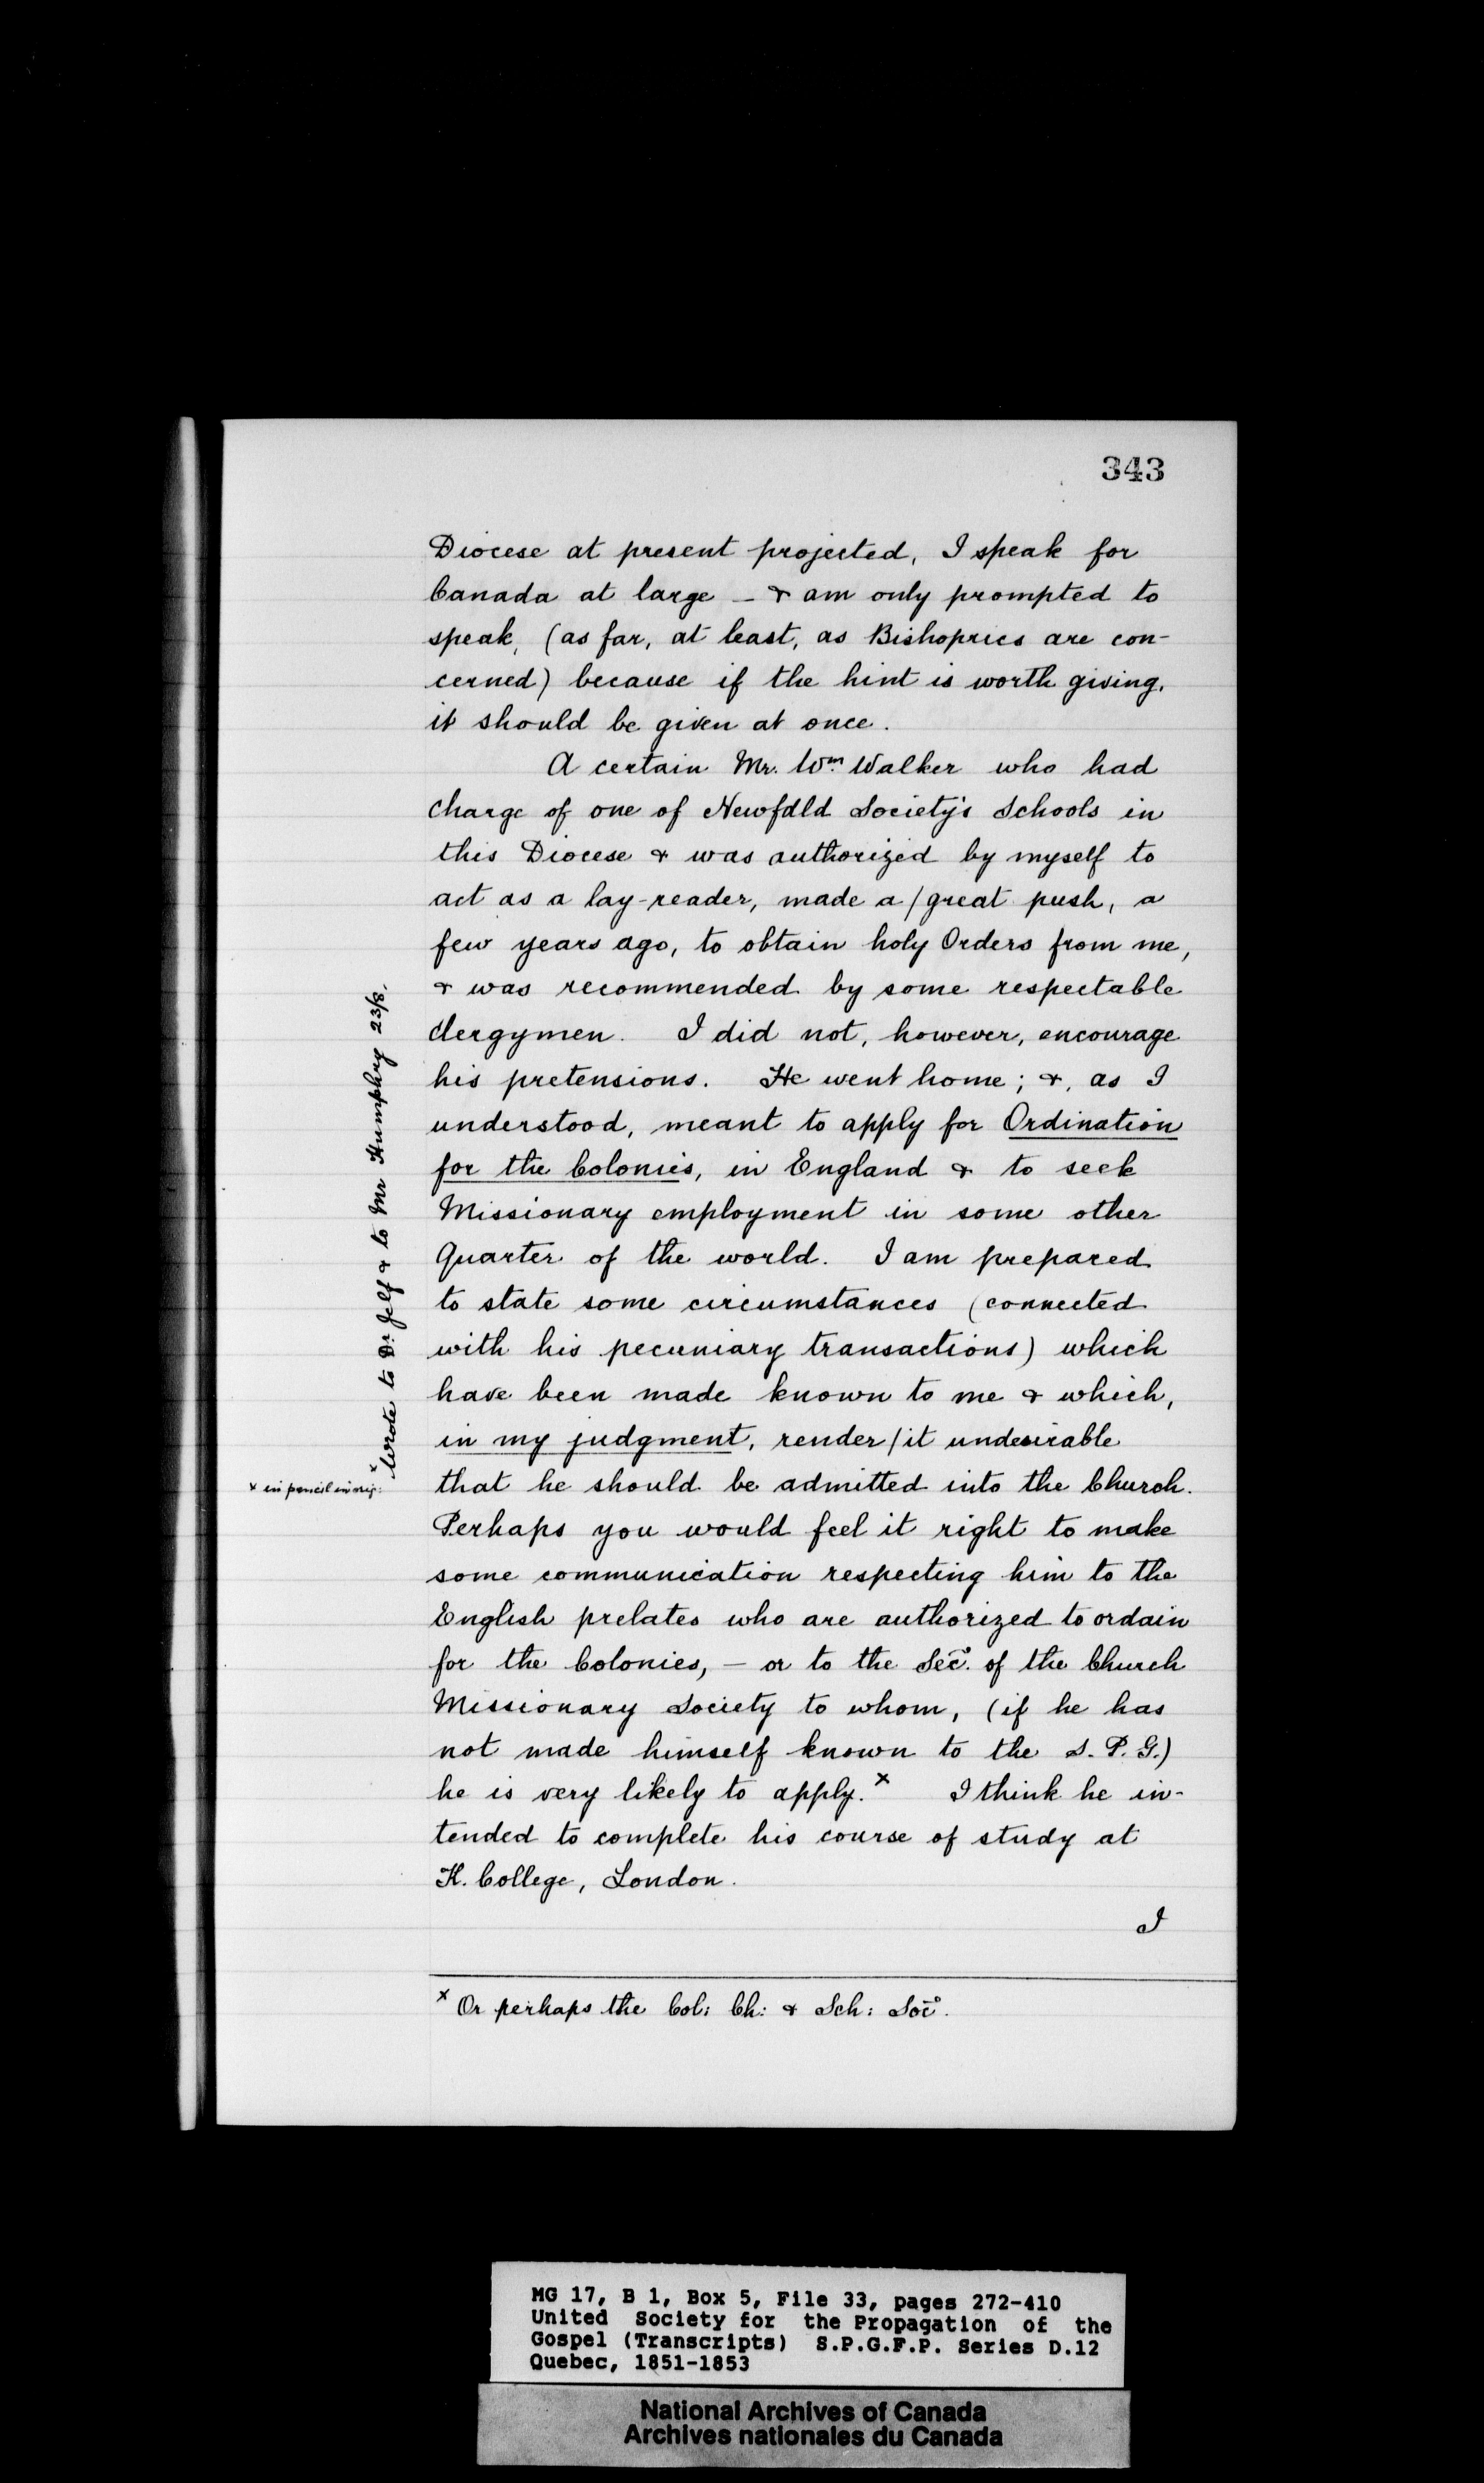 343
Diocese at present projected, I speak for
Canada at large – & am only prompted to
speak, (as far, at least, as Bishoprics are con-
cerned) because if the hint is worth giving,
it should be given at once.
A certain Mr. Wm. Walker who had
charge of one of Newfdld Society's Schools in
this Diocese & was authorized by myself to
act as a lay-reader, made a / great push, a
few years ago, to obtain holy Orders from me,
& was recommended by some respectable
Clergymen. I did not, however, encourage
his pretensions. He went home; &, as I
understood, meant to apply for Ordination
for the Colonies, in England & to seek
Missionary employment in some other
Quarter of the world. I am prepared
to state some circumstances (connected
with his pecuniary transactions) which
have been made known to me & which,
in my judgment, render / it undesirable
that he should be admitted into the Church.
Perhaps you would feel it right to make
some communication respecting him to the
English prelates who are authorized to ordain
for the Colonies, – or to the Secy. of the Church
Missionary Society to whom, (if he has
not made himself known to the S. P. G.)
he is very likely to apply.x I think he in-
tended to complete his course of study at
K. College, London.
I
x Or perhaps the Col: Ch: & Sch: Socy.
x Wrote to Dr. Jelf & to Mr Humphry 23/8.
x in pencil in orig:
MG 17, B 1, Box 5, File 33, pages 272-410
United Society for the Propagation of the
Gospel (Transcripts) S.P.G.F.P. Series D.12
Quebec, 1851-1853
National Archives of Canada
Archives nationales du Canada